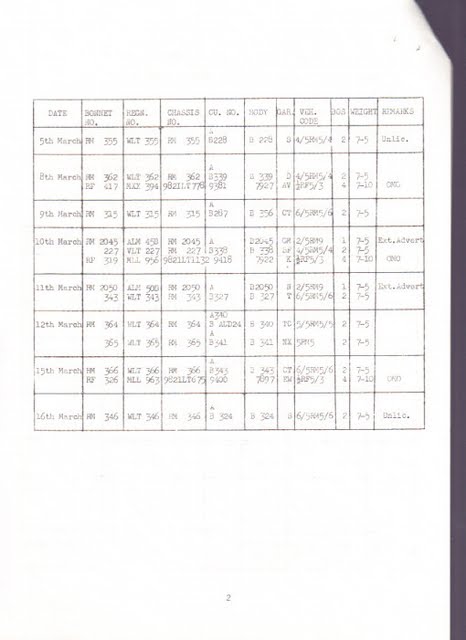 DATE BONNET NO. REGN. NO. CHASSIS NO. CU. NO. BODY GAR. VEH. CODE POS WEIGHT REMARKS
A
5th March RM 355 WLT 355 RM 355 B228 B 228 S 4/5RM5/4 2 7-5 Unlic.
A
8th March RM 362 WLT 362 RM 362 B339 B 339 D 4/5RM5/4 2 7-5
RF 417 MXX 394 9821LT778 9381 7927 AV ½RF5/3 4 7-10 OMO
A
9th March RM 315 WLT 315 RM 315 B287 B 356 CT 6/5RM5/6 2 7-5
10th March RM 2045 ALM 45B RM 2045 A B2045 GM 2/5RM9 1 7-5 Ext.Advert
227 VLT 227 RM 227 B338 B 338 4/5RM5/4 2 7-5
RF 319 MLL 956 9821LT1132 9418 7922 K ½RF5/3 4 7-10 OMO
11th March RM 2050 ALM 50B RM 2050 A B2050 S 2/5RM9 1 7-5 Ext.Advert
343 WLT 343 RM 343 B327 B 327 T 6/5RM5/6 2 7-5
A340
12th March RM 364 WLT 364 RM 364 B ALD24 B 340 TC 5/5RM5/5 2 7-5
A
365 WLT 365 RM 365 B341 B 341 NX 5RM5 2 7-5
A
15th March RM 366 WLT 366 RM 366 B343 343 CT 6/5RM5/6 2 7-5
RF 326 MLL 963 9821LT675 9400 7897 ½RF5/3 4 7-10 OMO
A
16th March RM 346 WLT 346 RM 346 B 324 B 324 S 6/5RM5/6 2 7-5 Unlic.
2